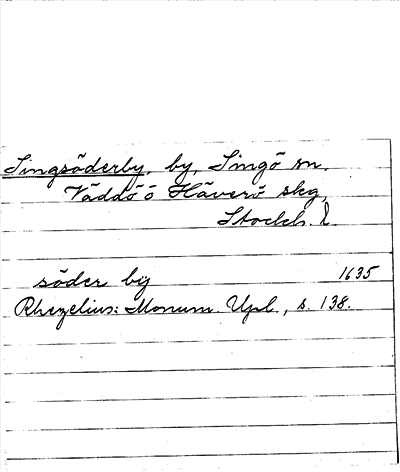 Singsöderby, by, Singö sn.
Väddö ö Häverö skg,
Stockh. l.
söder by 1635
Rhezelius: Monum. Upl., s. 138.